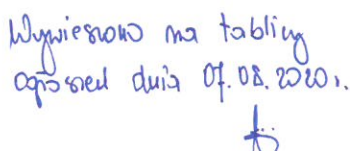 Wywieszono na tablicy
ogłoszeń dnia 07.08.2020r.